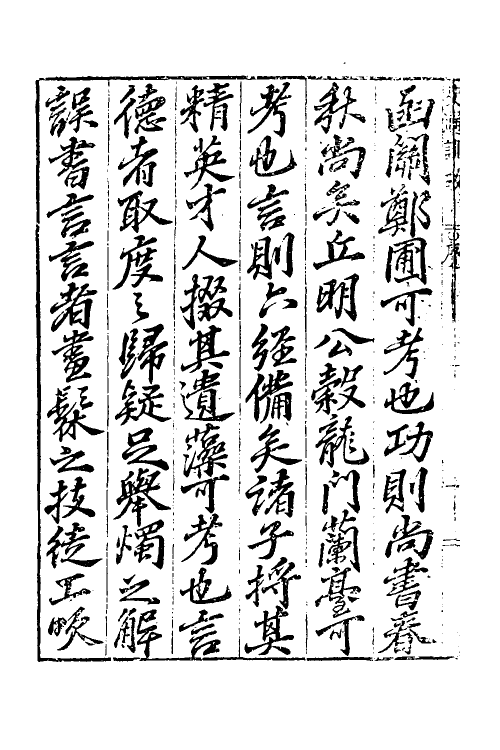 函關鄭圃可考也功則尚書春
秋尚矣丘明公穀龍門蘭臺可
考也言則六經備矣諸子捋其
精英才人掇其遺藻可考也言
德者取度之歸疑足舉燭之解
誤書言言者畫鬃之技徒工